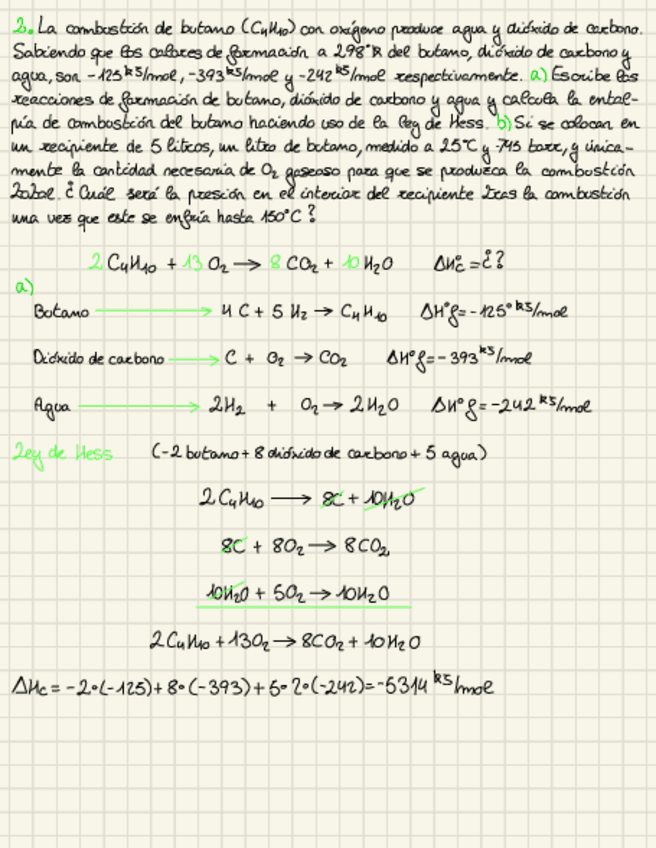 2. La combustión de butano (C4H10) con oxígeno produce agua y dióxido de carbono.
Sabiendo que los calores de formación a 298°K del butano, dióxido de carbono y
agua, son -125 kJ/mol, -393 kJ/mol y -242 kJ/mol respectivamente. a) Escribe las
reacciones de formación de butano, dióxido de carbono y agua y calcula la ental-
pía de combustión del butano haciendo uso de la Ley de Hess. b) Si se colocan en
un recipiente de 5 litros, un litro de butano, medido a 25°C y 745 torr, y única-
mente la cantidad necesaria de O2 gaseoso para que se produzca la combustión
total. ¿Cuál será la presión en el interior del recipiente tras la combustión
una vez que este se enfría hasta 150°C?
2 C4H10 + 13 O2 → 8 CO2 + 10 H2O ΔH°c = ¿?
a)
Butano → 4 C + 5 H2 → C4H10 ΔH°f = -125 kJ/mol
Dióxido de carbono → C + O2 → CO2 ΔH°f = -393 kJ/mol
Agua → 2H2 + O2 → 2H2O ΔH°f = -242 kJ/mol
Ley de Hess (-2 butano + 8 dióxido de carbono + 5 agua)
2 C4H10 → 8C + 10H2O
8C + 8O2 → 8CO2
10H2O + 5O2 → 10H2O
2 C4H10 + 13O2 → 8CO2 + 10H2O
ΔHc = -2·(-125) + 8·(-393) + 5·2·(-242) = -5314 kJ/mol